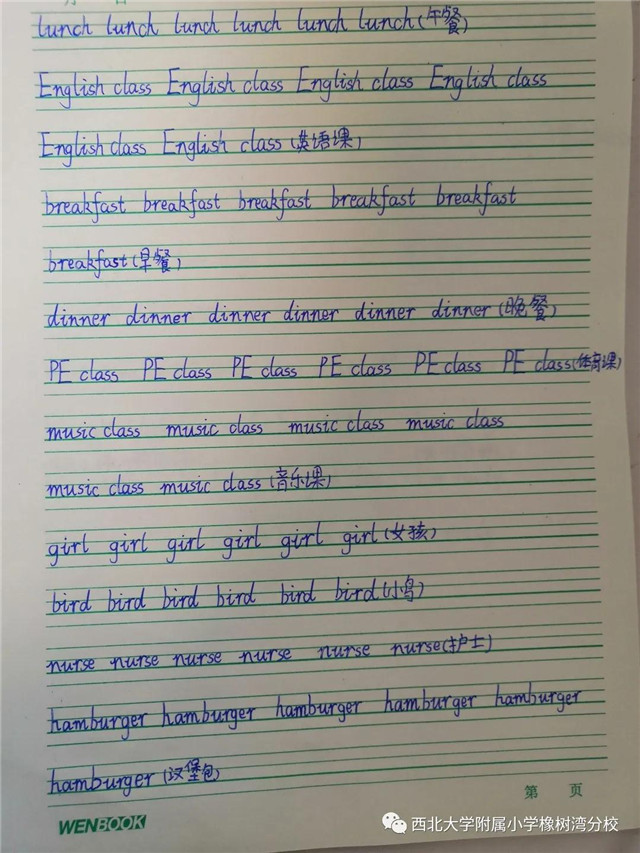 月 日
lunch lunch lunch lunch lunch lunch (午餐)
English class English class English class English class
English class English class (英语课)
breakfast breakfast breakfast breakfast breakfast
breakfast (早餐)
dinner dinner dinner dinner dinner dinner (晚餐)
PE class PE class PE class PE class PE class PE class (体育课)
music class music class music class music class
music class music class (音乐课)
girl girl girl girl girl girl (女孩)
bird bird bird bird bird bird (小鸟)
nurse nurse nurse nurse nurse nurse (护士)
hamburger hamburger hamburger hamburger hamburger
hamburger (汉堡包)
第 页
西北大学附属小学橡树湾分校
WENBOOK